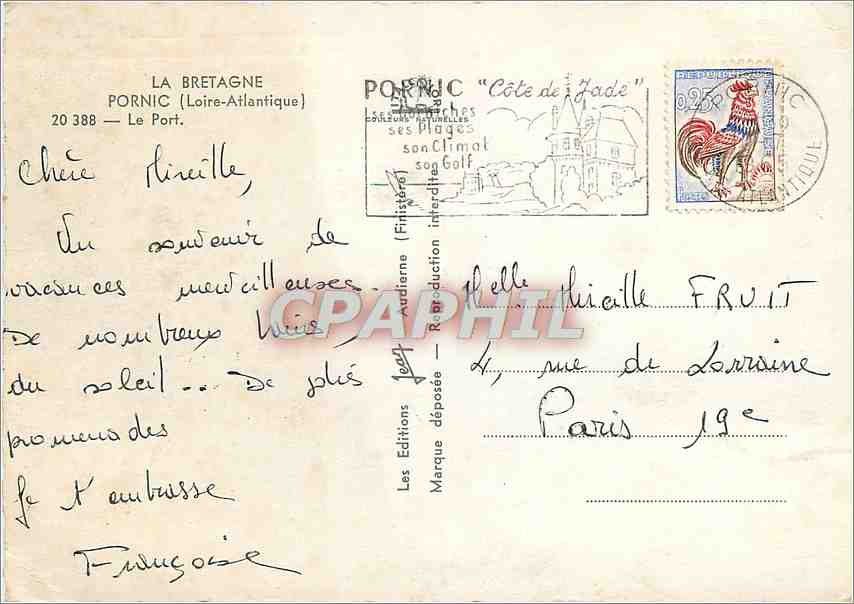 LA BRETAGNE
PORNIC (Loire-Atlantique)
20 388 — Le Port.
Chère Mireille,
Un souvenir de
vacances merveilleuses.
De nombreux bains,
du soleil... De jolies
promenades
Je t'embrasse
Françoise
Les Editions Jean Audierne (Finistère)
Marque déposée — Reproduction interdite
COULEURS NATURELLES
PORNIC "Côte de Jade"
ses
ses Plages
son Climat
son Golf
0,25
ATLANTIQUE
Melle Mireille FRUIT
4, rue de Lorraine
Paris 19e
CPAPHIL